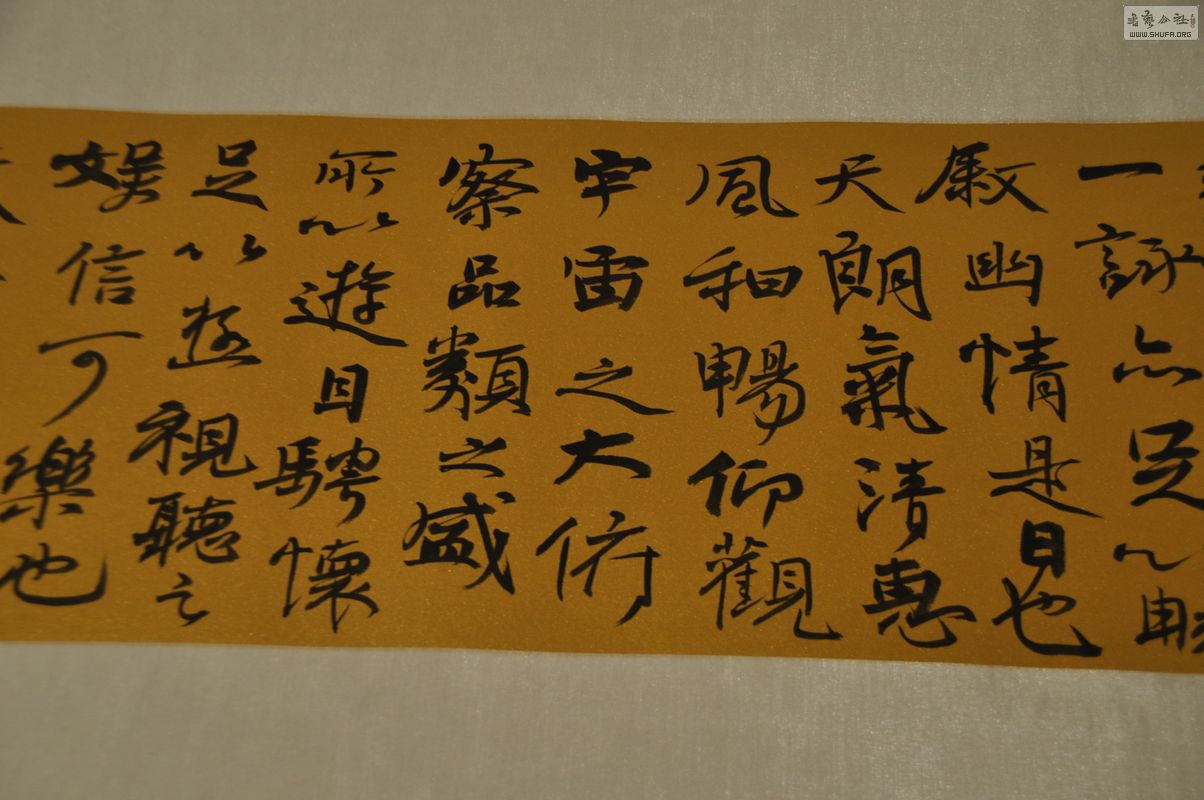 一詠亦足以暢
敘幽情是日也
天朗氣清惠
風和暢仰觀
宇宙之大俯
察品類之盛
所以遊目騁懷
足以極視聽之
娛信可樂也
书艺公社
WWW.SHUFA.ORG